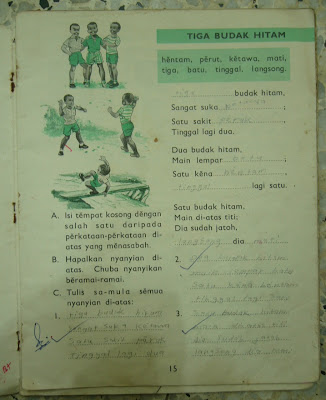 TIGA BUDAK HITAM
hĕntam, pĕrut, kĕtawa, mati,
tiga, batu, tinggal, langsong.
tiga budak hitam,
Sangat suka ketawa ;
Satu sakit perut ,
Tinggal lagi dua.
Dua budak hitam,
Main lempar batu ;
Satu kĕna hentam ,
tinggal lagi satu .
Satu budak hitam,
Main di-atas titi;
Dia sudah jatoh,
langsong dia mati .
A. Isi tĕmpat kosong dĕngan
salah satu daripada
pĕrkataan-pĕrkataan di-
atas yang mĕnasabah.
B. Hapalkan nyanyian di-
atas. Chuba nyanyikan
bĕramai-ramai.
C. Tulis sa-mula sĕmua
nyanyian di-atas:
1. tiga budak hitam
Sangat Suka ketawa
Satu Sakit perut
Tinggal lagi dua
2. dua budak hitam
main lempar batu
Satu kena hentam
tinggal lagi Satu
3. Satu budak hitam
main di-atas titi
dia Sudah jatoh
langsong dia mati
15